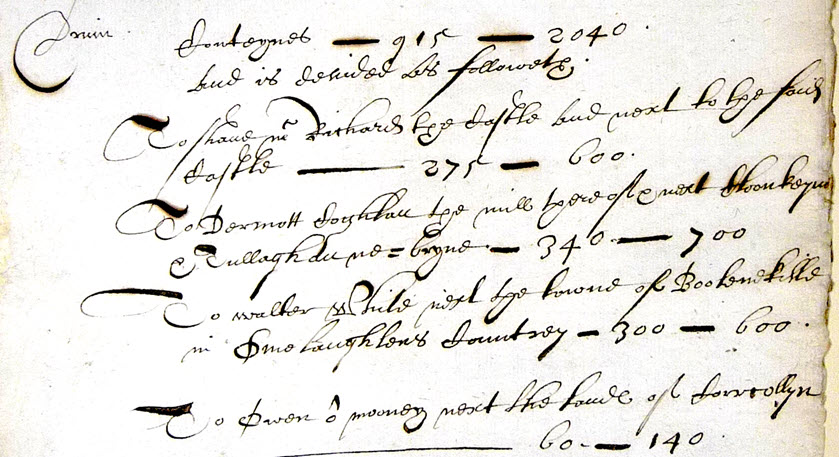 Conteynes — 915 — 2040.
And is devided as followeth.
To shane mc Richard the Castle and next to the said
Castle — 275 — 600.
To Dermott Coghlan the mill thereof next
Tullaghan ne=bryne — 340 — 700
To walter White next the towne of Bookenekille
in Omelaughlers Countrey — 300 — 600.
To Owen ô mooney next the lande of
60 — 140